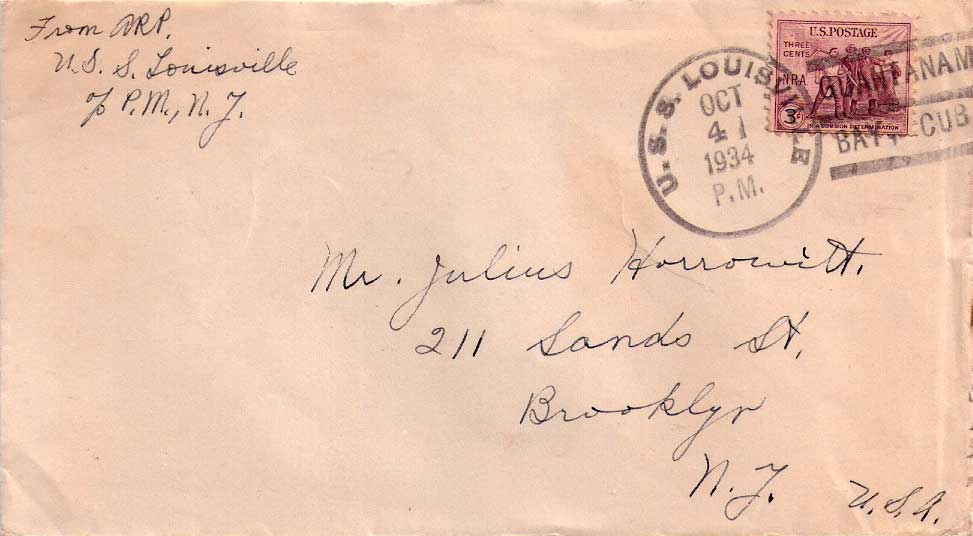 From ARP.
U.S.S. Louisville
c/o P.M., N.Y.
U.S. POSTAGE
THREE CENTS
NRA
3¢
IN A COMMON DETERMINATION
U.S.S. LOUISVILLE
OCT
4 1
1934
P.M.
GUANTANAM
BAY, CUB
Mr. Julius Horrowitt.
211 Sands St.
Brooklyn
N.Y.
U.S.A.